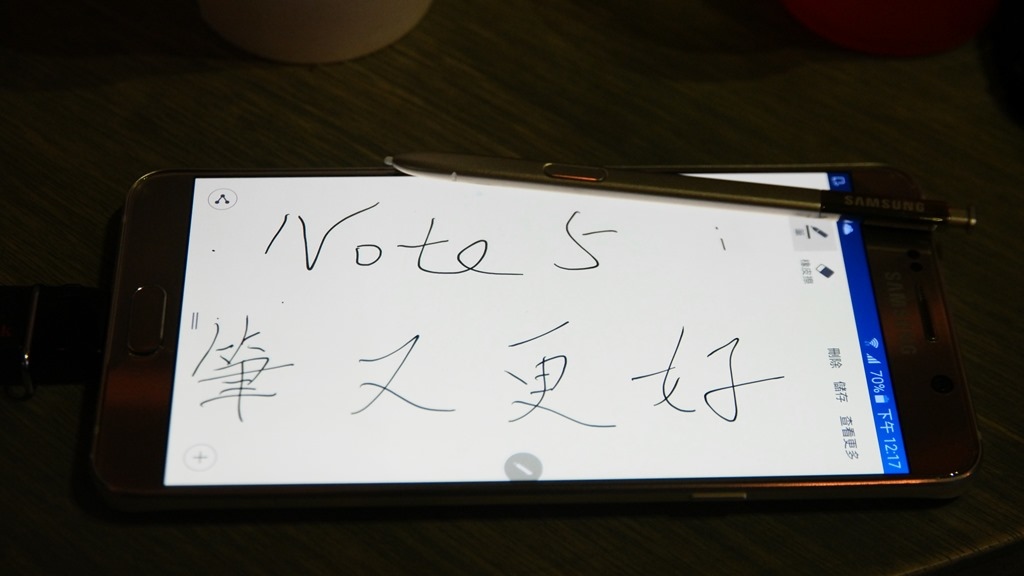 Note 5
筆又更好
SAMSUNG
SAMSUNG
橡皮擦
刪除 儲存 查看更多
70% 下午 12:17